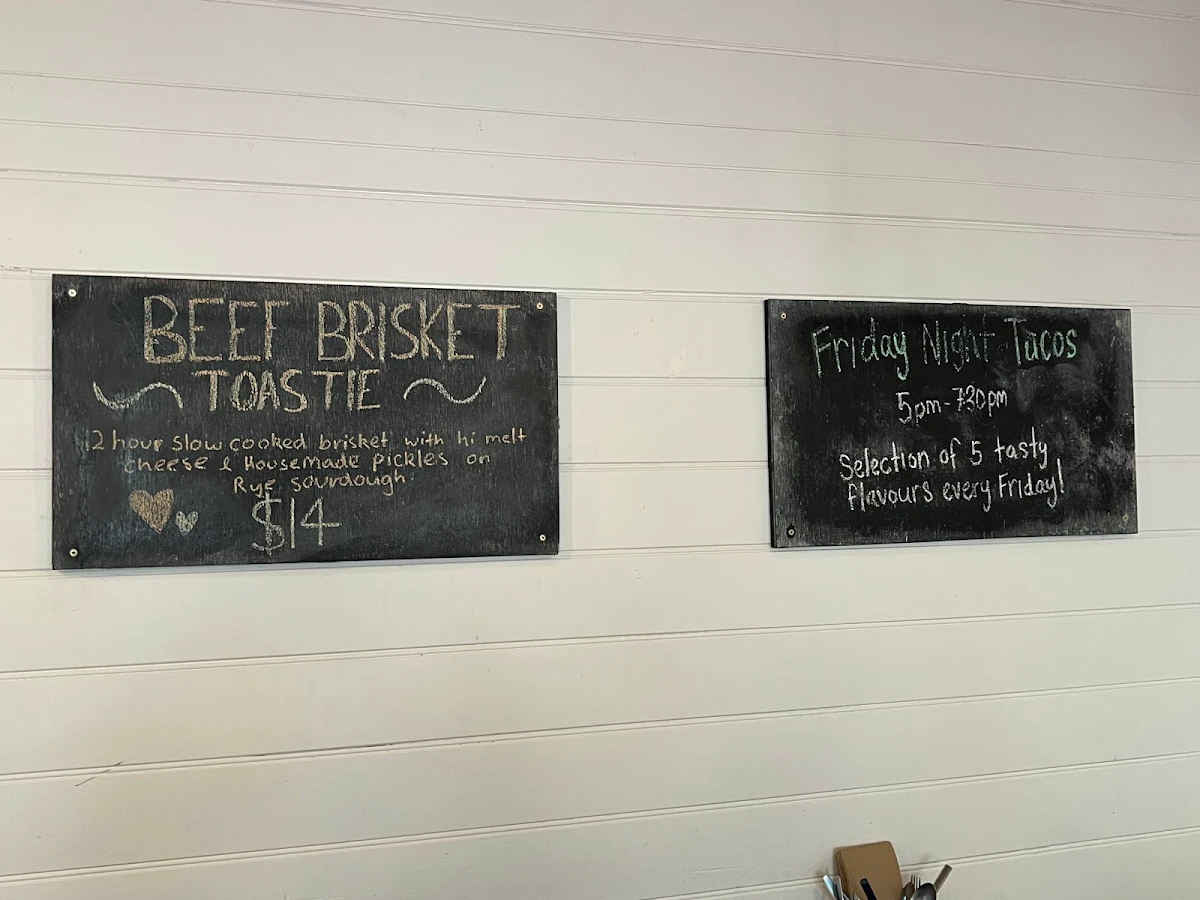 BEEF BRISKET
TOASTIE
12 hour slow cooked brisket with hi melt
cheese & Housemade pickles on
Rye sourdough
$14
Friday Night Tacos
5pm-7:30pm
Selection of 5 tasty
flavours every Friday!